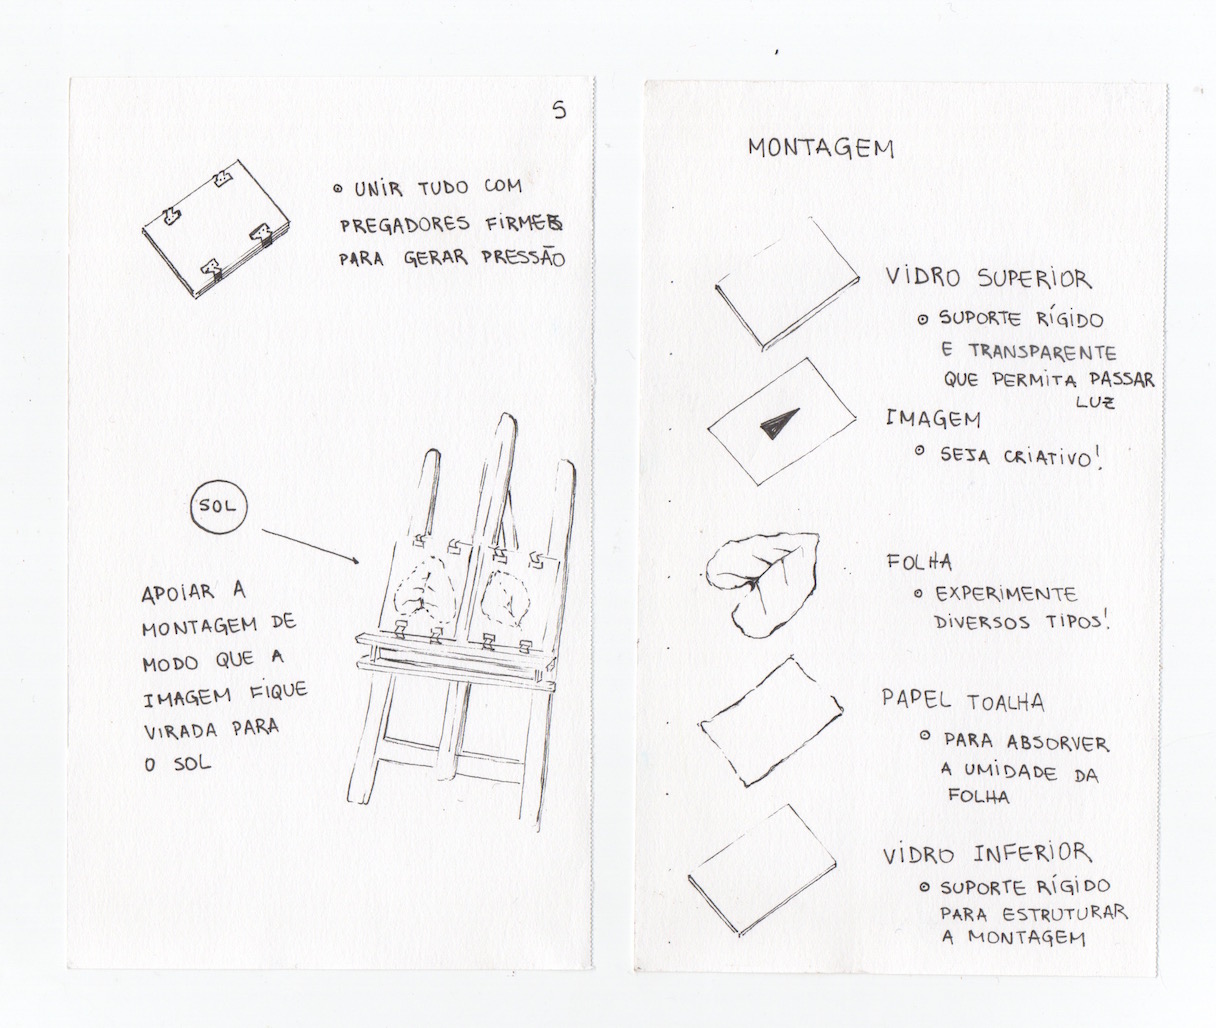 5
UNIR TUDO COM
PREGADORES FIRMES
PARA GERAR PRESSÃO
SOL
APOIAR A
MONTAGEM DE
MODO QUE A
IMAGEM FIQUE
VIRADA PARA
O SOL
MONTAGEM
VIDRO SUPERIOR
SUPORTE RÍGIDO
E TRANSPARENTE
QUE PERMITA PASSAR
LUZ
IMAGEM
SEJA CRIATIVO!
FOLHA
EXPERIMENTE
DIVERSOS TIPOS!
PAPEL TOALHA
PARA ABSORVER
A UMIDADE DA
FOLHA
VIDRO INFERIOR
SUPORTE RÍGIDO
PARA ESTRUTURAR
A MONTAGEM